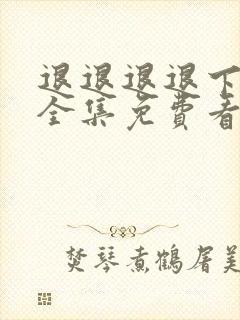 退退退退下
全集免费看
焚琴煮鹤屠美